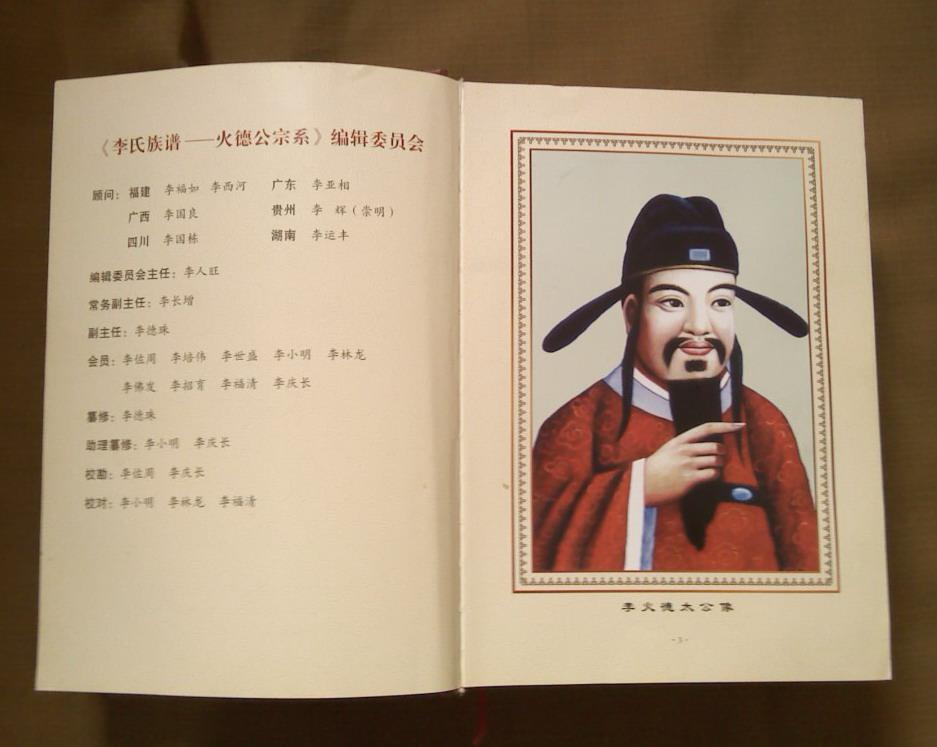 《李氏族谱——火德公宗系》编辑委员会
顾问：福建 李福如 李西河 广东 李亚相
广西 李国良 贵州 李 辉（崇明）
四川 李国栋 湖南 李运丰
编辑委员会主任：李人旺
常务副主任：李长增
副主任：李德珠
会员：李佐周 李培伟 李世盛 李小明 李林龙
李佛发 李招育 李福清 李庆长
纂修：李德珠
助理纂修：李小明 李庆长
校勘：李佐周 李庆长
校对：李小明 李林龙 李福清
李火德太公像
-3-